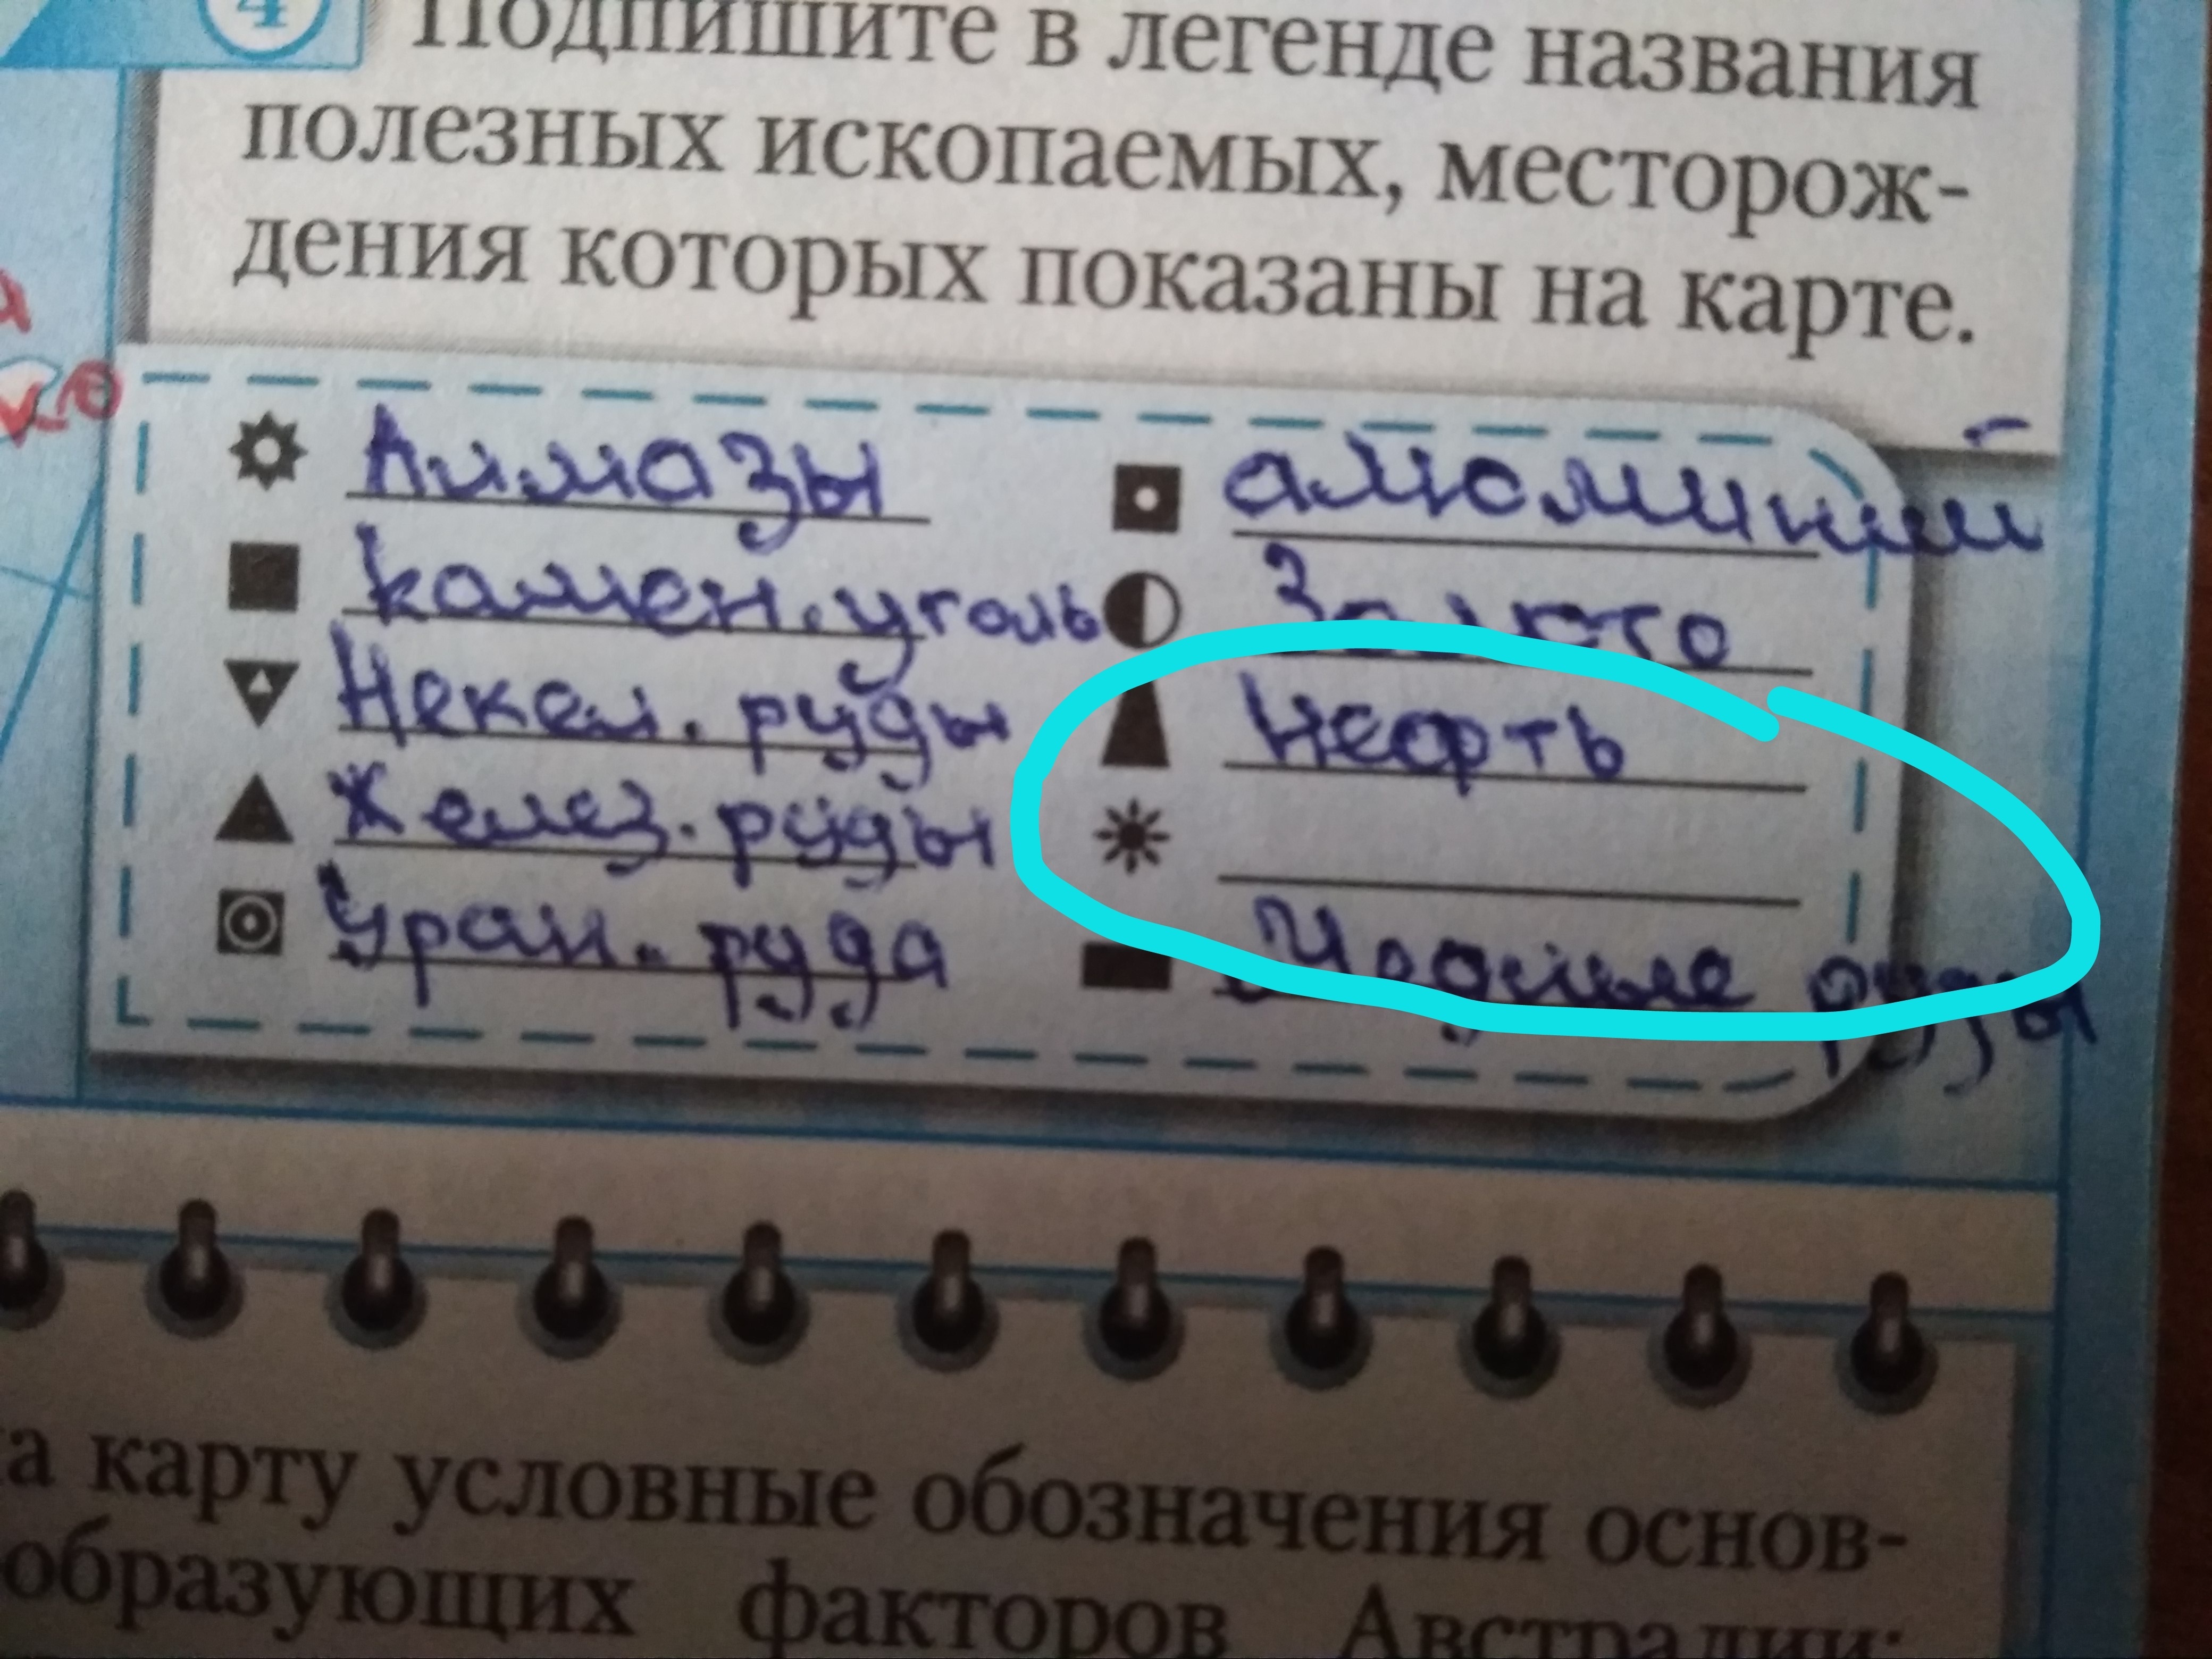 4 Подпишите в легенде названия
полезных ископаемых, месторож-
дения которых показаны на карте.
Алмазы
алюминий
камен. уголь
Золото
Некел. руды
Нефть
Желез. руды
Уран. руда
руды
а карту условные обозначения основ-
образующих факторов Австралии: